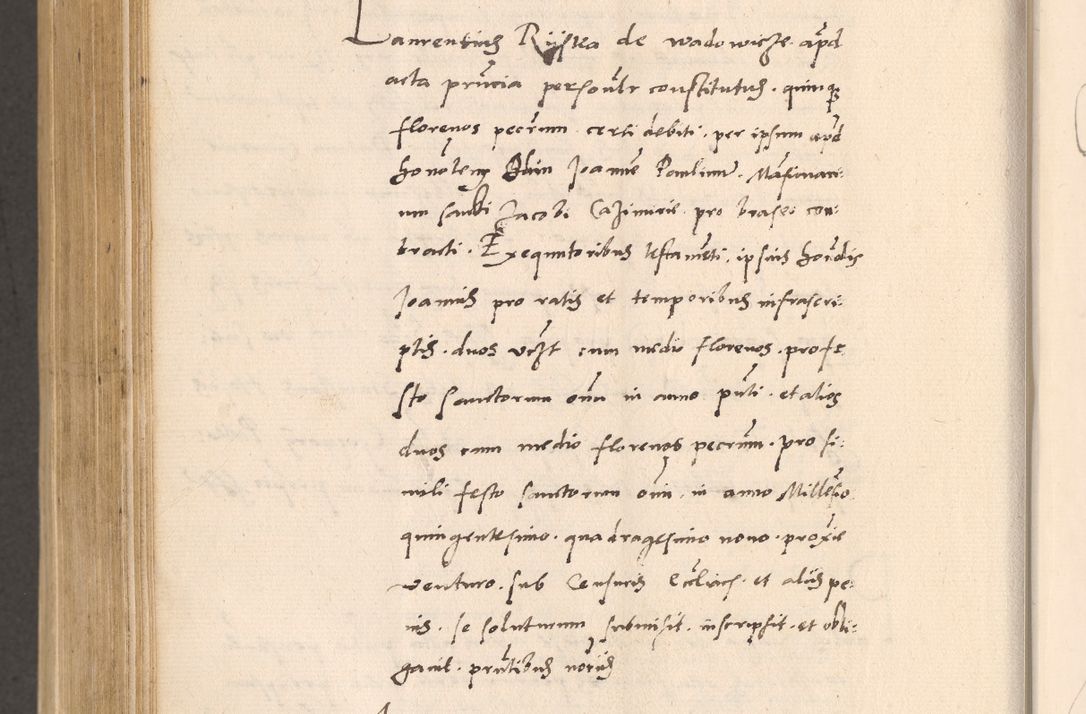 Laurentius Rijska de wadowicze. apd
acta prncia personlr constitutus. quinq
florenos pecrum. certi debiti. per ipsum apd
honotem Dnm Joannem Paulinum. Mansionari:
um sancti Jacobi Cazimirie. pro braseo con:
tracti. Exequutoribus testamenti. ipsius hondis
Joannis pro ratis et temporibus infrascri:
ptis. duos vczt cum medio florenos. profe
sto sanctorum oim in anno pnti. et alios
duos cum medio florenos pecrum. pro si:
mili festo sanctorum oim. in anno Millesio
quingentesimo. quadragesimo nono. proxie
venturo. sub Censuris Eccliacis. et aliis pe:
nis. se soluturum submisit. inscripsit. et obli:
gavit. prntibus